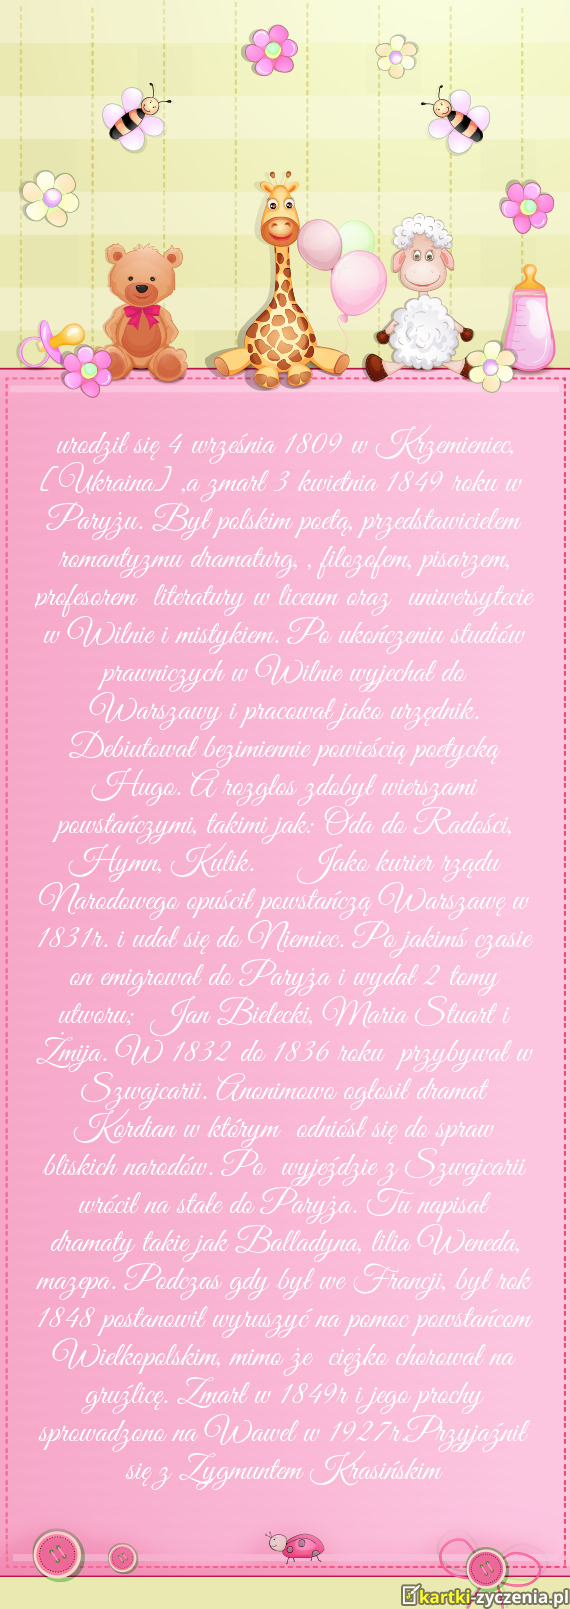 urodził się 4 września 1809 w Krzemieniec,
[Ukraina] ,a zmarł 3 kwietnia 1849 roku w
Paryżu. Był polskim poetą, przedstawicielem
romantyzmu dramaturg, , filozofem, pisarzem,
profesorem literatury w liceum oraz uniwersytecie
w Wilnie i mistykiem. Po ukończeniu studiów
prawniczych w Wilnie wyjechał do
Warszawy i pracował jako urzędnik.
Debiutował bezimiennie powieścią poetycką
Hugo. A rozgłos zdobył wierszami
powstańczymi, takimi jak: Oda do Radości,
Hymn, Kulik. Jako kurier rządu
Narodowego opuścił powstańczą Warszawę w
1831r. i udał się do Niemiec. Po jakimś czasie
on emigrował do Paryża i wydał 2 tomy
utworu; Jan Bielecki, Maria Stuart i
Żmija. W 1832 do 1836 roku przybywał w
Szwajcarii. Anonimowo ogłosił dramat
Kordian w którym odniósł się do spraw
bliskich narodów. Po wyjeździe z Szwajcarii
wrócił na stałe do Paryża. Tu napisał
dramaty takie jak Balladyna, lilia Weneda,
mazepa. Podczas gdy był we Francji, był rok
1848 postanowił wyruszyć na pomoc powstańcom
Wielkopolskim, mimo że ciężko chorował na
gruźlicę. Zmarł w 1849r i jego prochy
sprowadzono na Wawel w 1927r.Przyjaźnił
się z Zygmuntem Krasińskim
kartki-zyczenia.pl